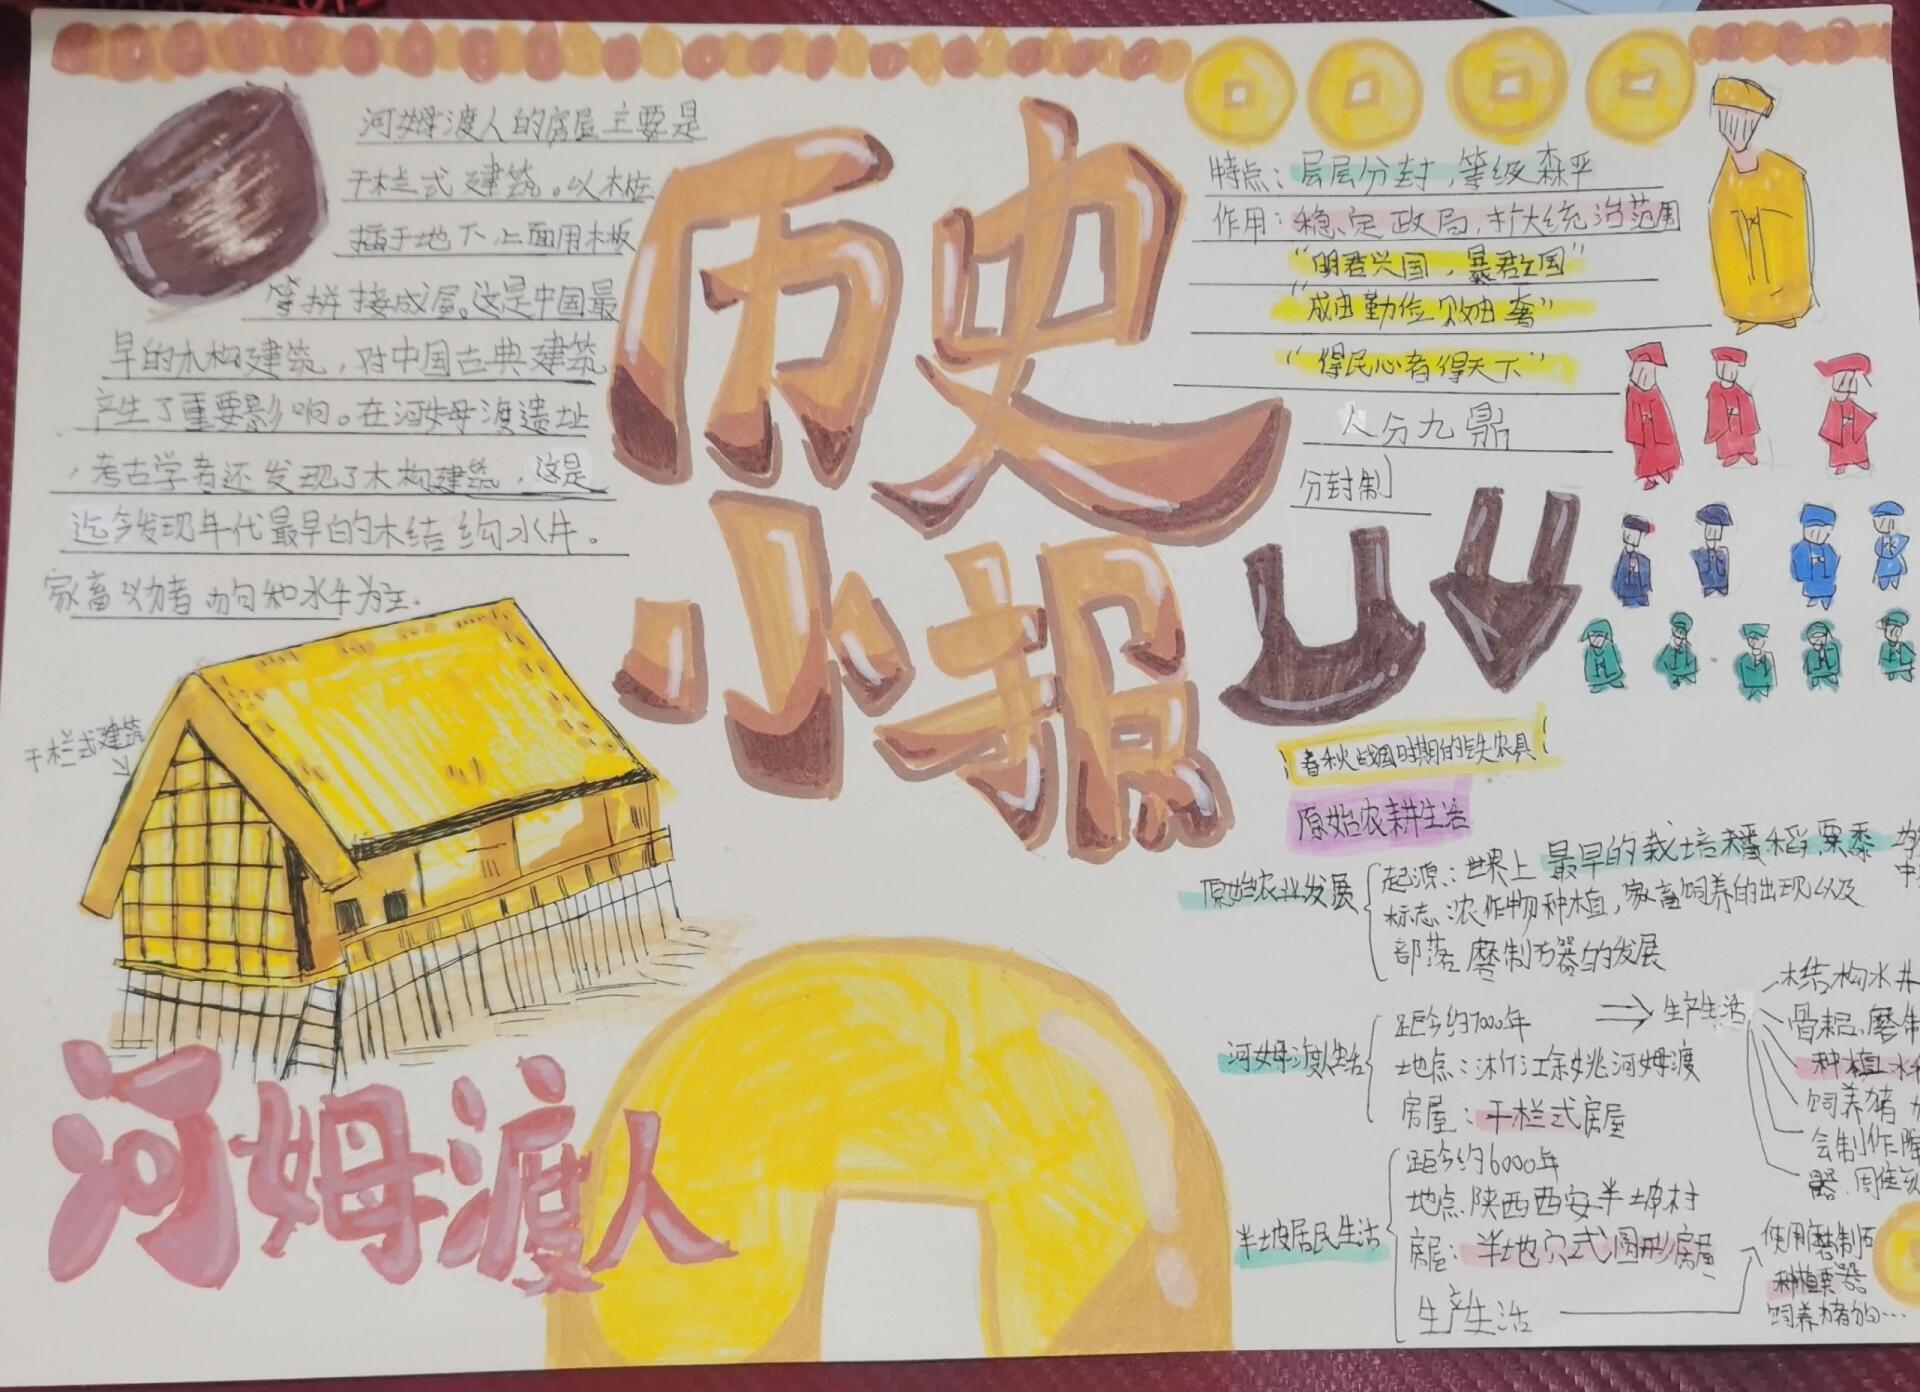 河姆渡人的房屋主要是
干栏式建筑。以木桩
插于地下上面用木板
等拼接成屋。这是中国最
早的木构建筑，对中国古典建筑
产生了重要影响。在河姆渡遗址
，考古学者还发现了木构建筑，这是
迄今发现年代最早的木结构水井。
家畜以为主.
干栏式建筑
河姆渡人
历史
小报
特点：层层分封，等级森严
作用：稳定政局，扩大统治范围
“明君兴国，暴君亡国”
“成由勤俭败由奢”
“得民心者得天下”
人分九鼎
分封制
春秋战国时期的铁农具
原始农耕生活
原始农业发展
起源：世界上最早的栽培稻，粟黍
标志：农作物种植，家畜饲养的出现以及
部落磨制石器的发展
河姆渡人生活
距今约7000年
地点：浙江余姚河姆渡
房屋：干栏式房屋
生产生活
木结构水井
骨耜、磨制
种植水
饲养猪
会制作陶
器.
半坡居民生活
距今约6000年
地点.陕西西安半坡村
房屋：半地穴式圆形房屋
生产生活
使用磨制石
种植粟器
饲养猪狗…